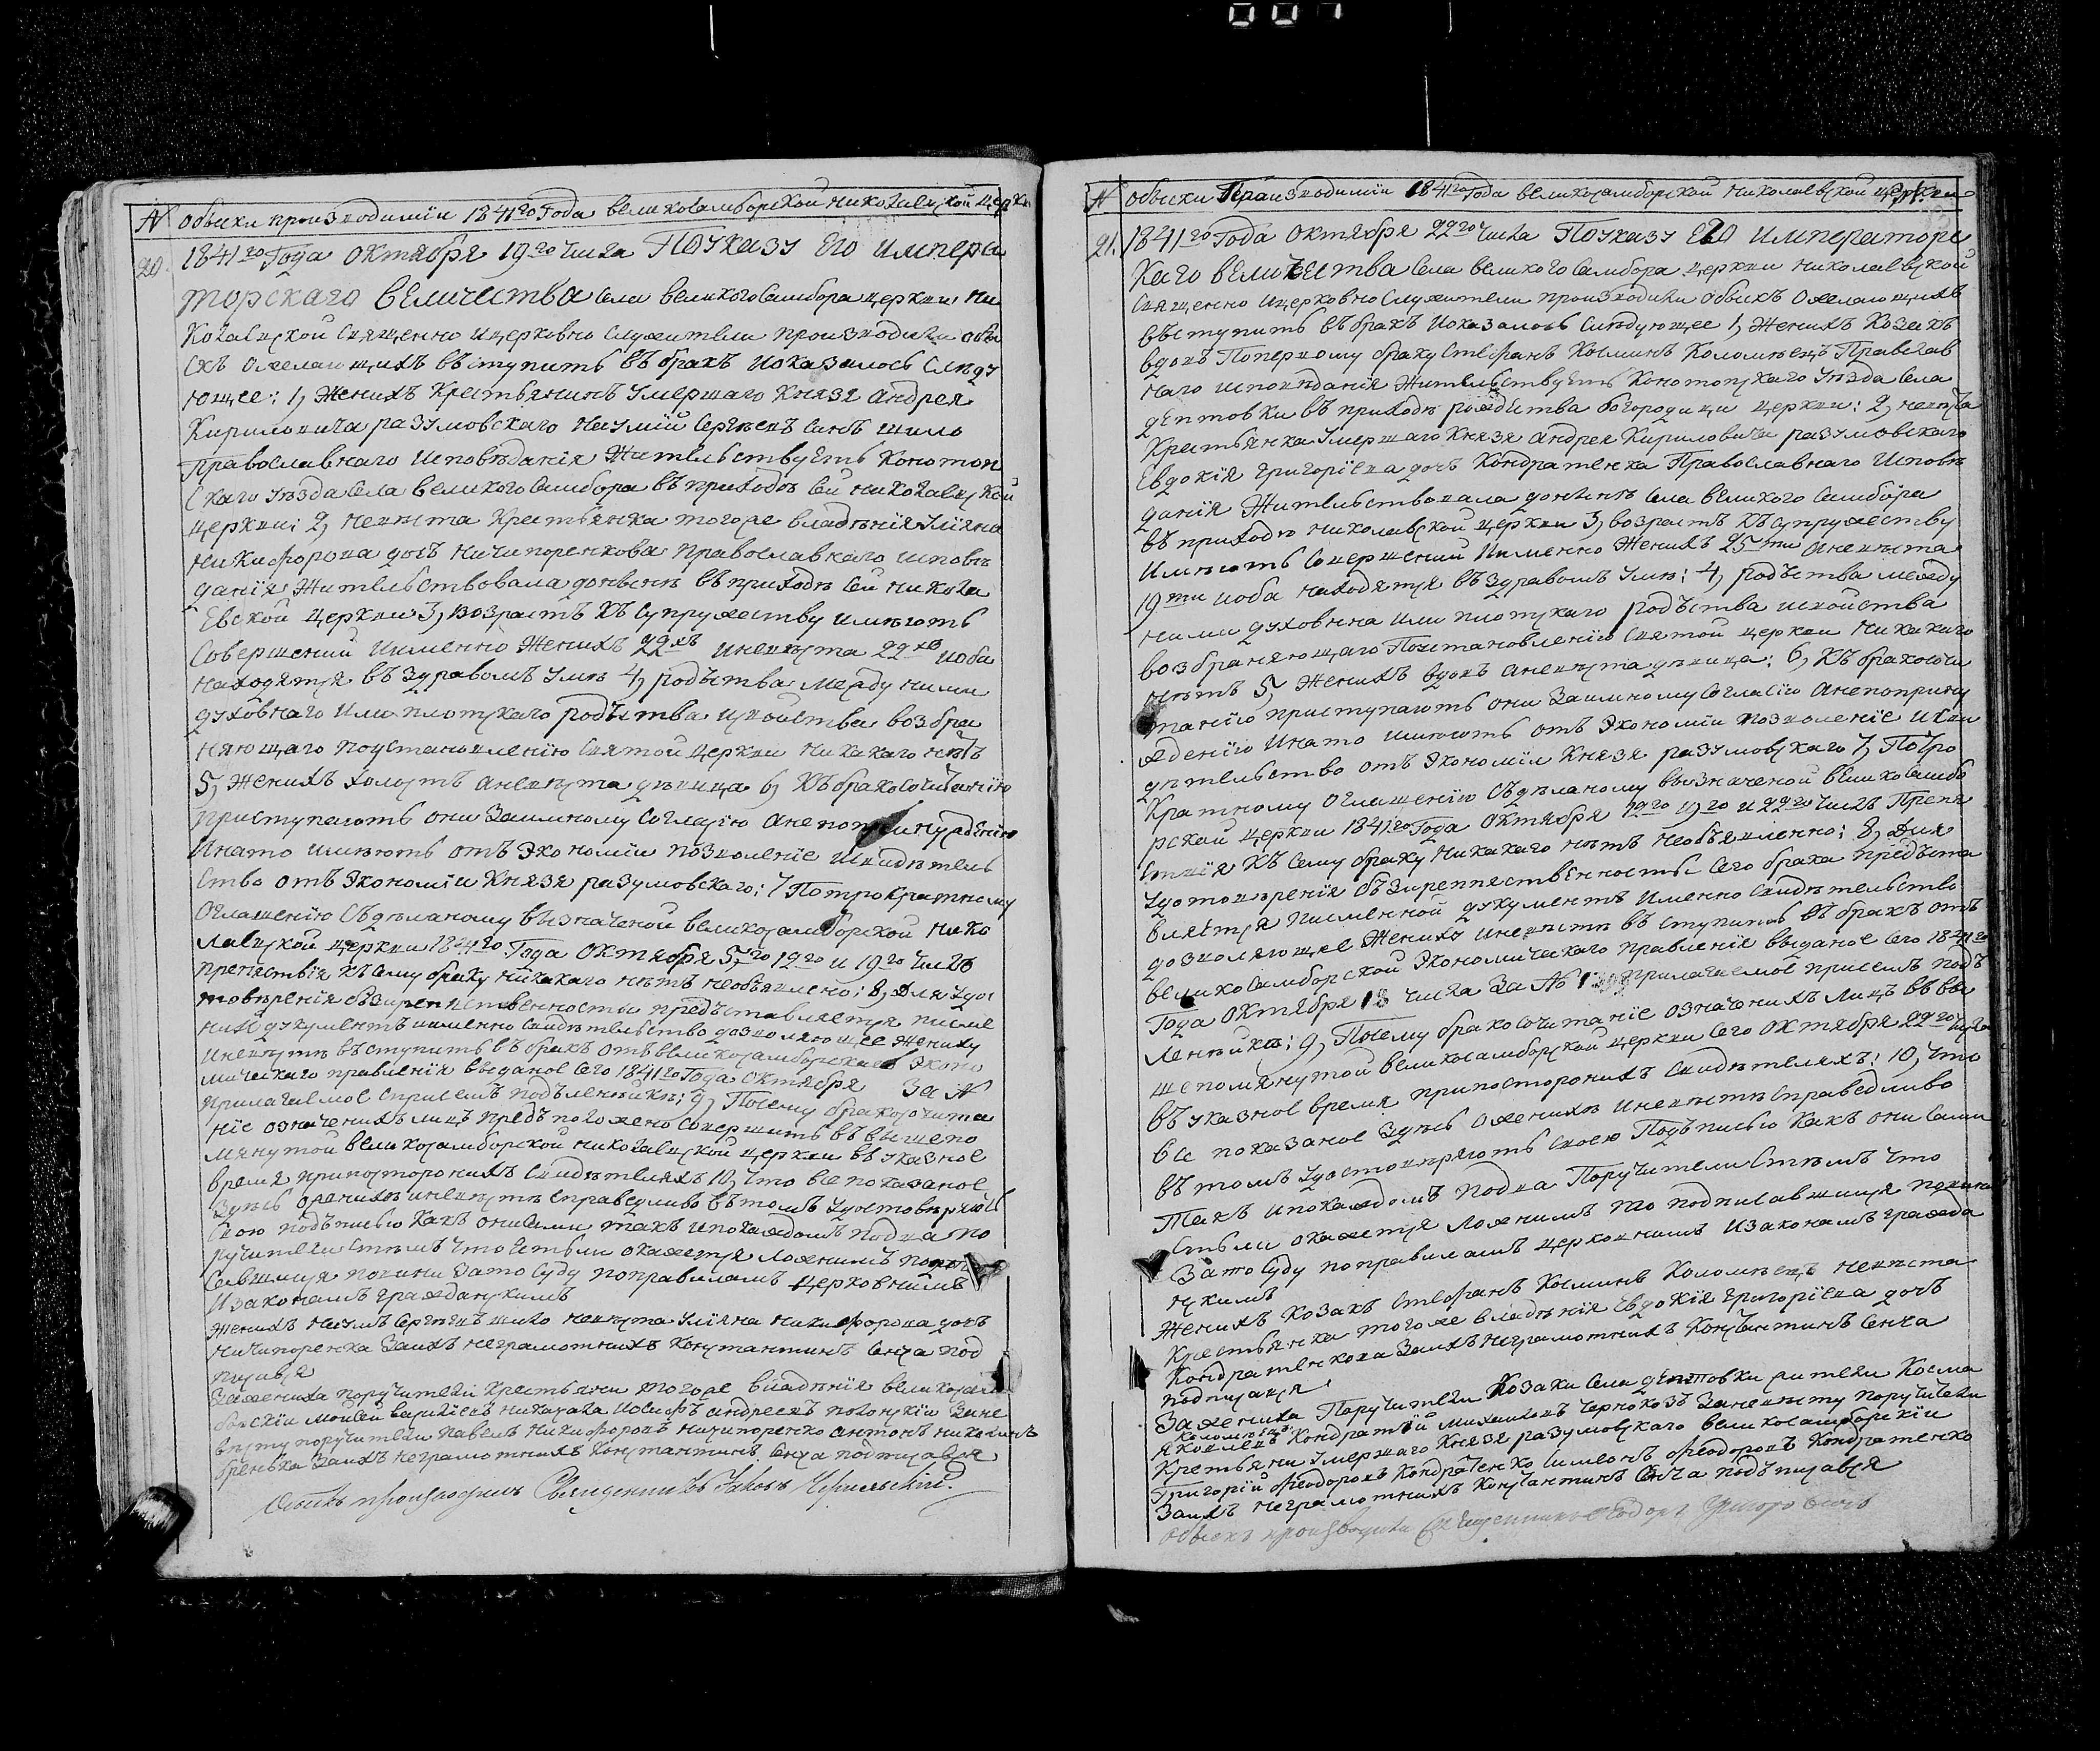 N обыски произходимїи 1841го Года великосамборской николаевской церкви
20. 1841го Года октября 19го числа По указу Его импера
торскаго величества села великого самбора церкви ни
колаевской священно и церковно служители произходили обы
скъ о желающихъ въступить въ бракъ и оказалось следу
ющее: 1, Женихъ крестьянинъ умершаго князя андрея
кириловича разумовскаго Сергѣевъ синъ шило
православнаго исповѣданія жительствуетъ конотоп
скаго уезда села великого самбора въ приходѣ сей николаевской
церкви: 2, невѣста крестьянка того же владѣнія уліяна
никифорова дочь ничипоренкова православнаго исповѣ
данія жительствовала донынѣ въ приходѣ сей никола
евской церкви 3, возрастъ къ супружеству имѣютъ
совершений именно женихъ 22хъ а невѣста 22хъ и оба
находятся въ здравомъ умѣ 4, родъства между ними
духовнаго или плотскаго родъства и свойства возбра
няющаго по установленію святой церкви никакого нѣтъ
5, женихъ холостъ а невѣста дѣвица 6, къ бракосочитанію
приступаютъ они взаимному согласію а не по принужденію
и на то имѣютъ отъ экономіи позволеніе и свидѣтель
ство отъ экономіи князя разумовскаго: 7 По трократному
оглашенію съдѣланому в означеной великосамборской нико
лаевской церкви 1841го Года октября 5го 12го и 19го числъ
препятствія къ сему браку никакого нѣтъ необъявлено: 8, для удос
товѣренія безпрепятственности предъставляется писме
ний документъ именно свидѣтельство дозволяющее жениху
и невѣстѣ въступить въ бракъ отъ великосамборскаго эконо
мическаго правленія выданое сего 1841го Года октября За N
прилагаемое при семъ подъленнике: 9, Посему бракосочита
ніе означенихъ лицъ предъположено совершить въ вышепо
мянутой великосамборской николаевской церкви въ указное
время при посторонихъ свидѣтеляхъ 10, что все показаное
здѣсь о женихѣ и невѣстѣ справедливо въ томъ удостовѣряютъ
свою подъписью какъ они сами такъ и по каждомъ подва по
ручители стѣмъ что естьли окажется ложнимъ то подпи
савшияся повини за то суду по правиламъ церковнимъ
и законамъ гражданскимъ
Женихъ Сергѣевъ шило невѣста уліяна никифорова дочь
ничипоренка за ихъ неграмотнихъ константинъ сенча под
писався
За жениха поручители крестьяни того же владѣнія великосам
борскїи мойсей и осифъ андреевъ за не
вѣсту поручители павелъ никифоровъ ничипоренко антонъ николаевъ
за ихъ неграмотнихъ константинъ сенча подписався
Обыскъ производилъ Священникъ Іаковъ
N обыски Произходимїи 1841го Года великосамборской николаевской церкви
21. 1841го Года октября 22го числа По указу Его императорс
каго величества села великого самбора церкви николаевской
священно и церковно служители произходили обыскъ о желающихъ
въступить въ бракъ и оказалось слѣдующее 1, Женихъ козакъ
вдовъ по первому браку стефанъ косминъ коломѣецъ Православ
наго исповѣданія жительствуетъ конотопскаго уѣзда села
дептовки въ приходѣ рождества богородици церкви: 2, невѣста
крестьянка умершаго князя андрея кириловича разумовскаго
Евдокія григоріева дочь кондратенка Православнаго исповѣ
данія Жительствовала донинѣ села великого самбора
въ приходѣ николаевской церкви 3, возрастъ къ супружеству
имѣютъ совершений именно женихъ 25ти а невѣста
19ти и оба находятся въ здравомъ умѣ: 4, родъства между
ними духовнна или плотскаго родъства и свойства
возбраняющаго По установленію святой церкви никакого
нѣтъ 5, Женихъ вдовъ а невѣста дѣвица: 6, къ бракосочи
танію приступаютъ они взаимному согласію а не по прину
жденію и на то имѣютъ отъ экономіи позволеніе и сви
дѣтельство отъ экономіи князя разумовскаго 7, По тро
кратному оглашенію съдѣланому в означеной великосамбо
рской церкви 1841го Года октября 12го 19го и 22го числъ Препя
ствія къ сему браку никакого нѣтъ необъявленно: 8, Для
удостовѣренія безпрепятственность сего брака предъста
вляется писменной документъ именно свидѣтельство
дозволяющее жениху и невѣстѣ въступить въ бракъ отъ
великосамборской экономическаго правленія выданое сего 1841го
Года октября 18 числа За N прилагаемое при семъ подъ
леннике: 9, Посему бракосочитаніе означенихъ лицъ въ вы
шепомянутой великосамборской церкви сего октября 22го числа
въ указное время при посторонихъ свидѣтеляхъ: 10, что
все показаное здѣсь о женихѣ и невѣстѣ справедливо
въ томъ удостовѣряютъ своею Подъписью какъ они сами
такъ и по каждомъ подва Поручители стѣмъ что
естьли окажется ложнимъ то подписавшияся повини
за то суду по правиламъ церковнимъ и законамъ гражда
нскимъ
Женихъ козакъ стефанъ косминъ коломѣецъ невѣста
крестьянка того же владѣнія Евдокія григоріева дочь
кондратенкова за ихъ неграмотнихъ константинъ сенча
подписался
За жениха Поручители козаки села дептовки косма
коломѣецъ
яковлевъ кондратїй михайловъ чернокозъ за невѣсту поручители
крестьяни умершаго князя разумовскаго великосамборскїи
григорїй феодоровъ кондратенко симеонъ феодоровъ кондратенко
за ихъ неграмотнихъ константинъ сенча подъписався
Обыскъ производилъ Священникъ Феодоръ